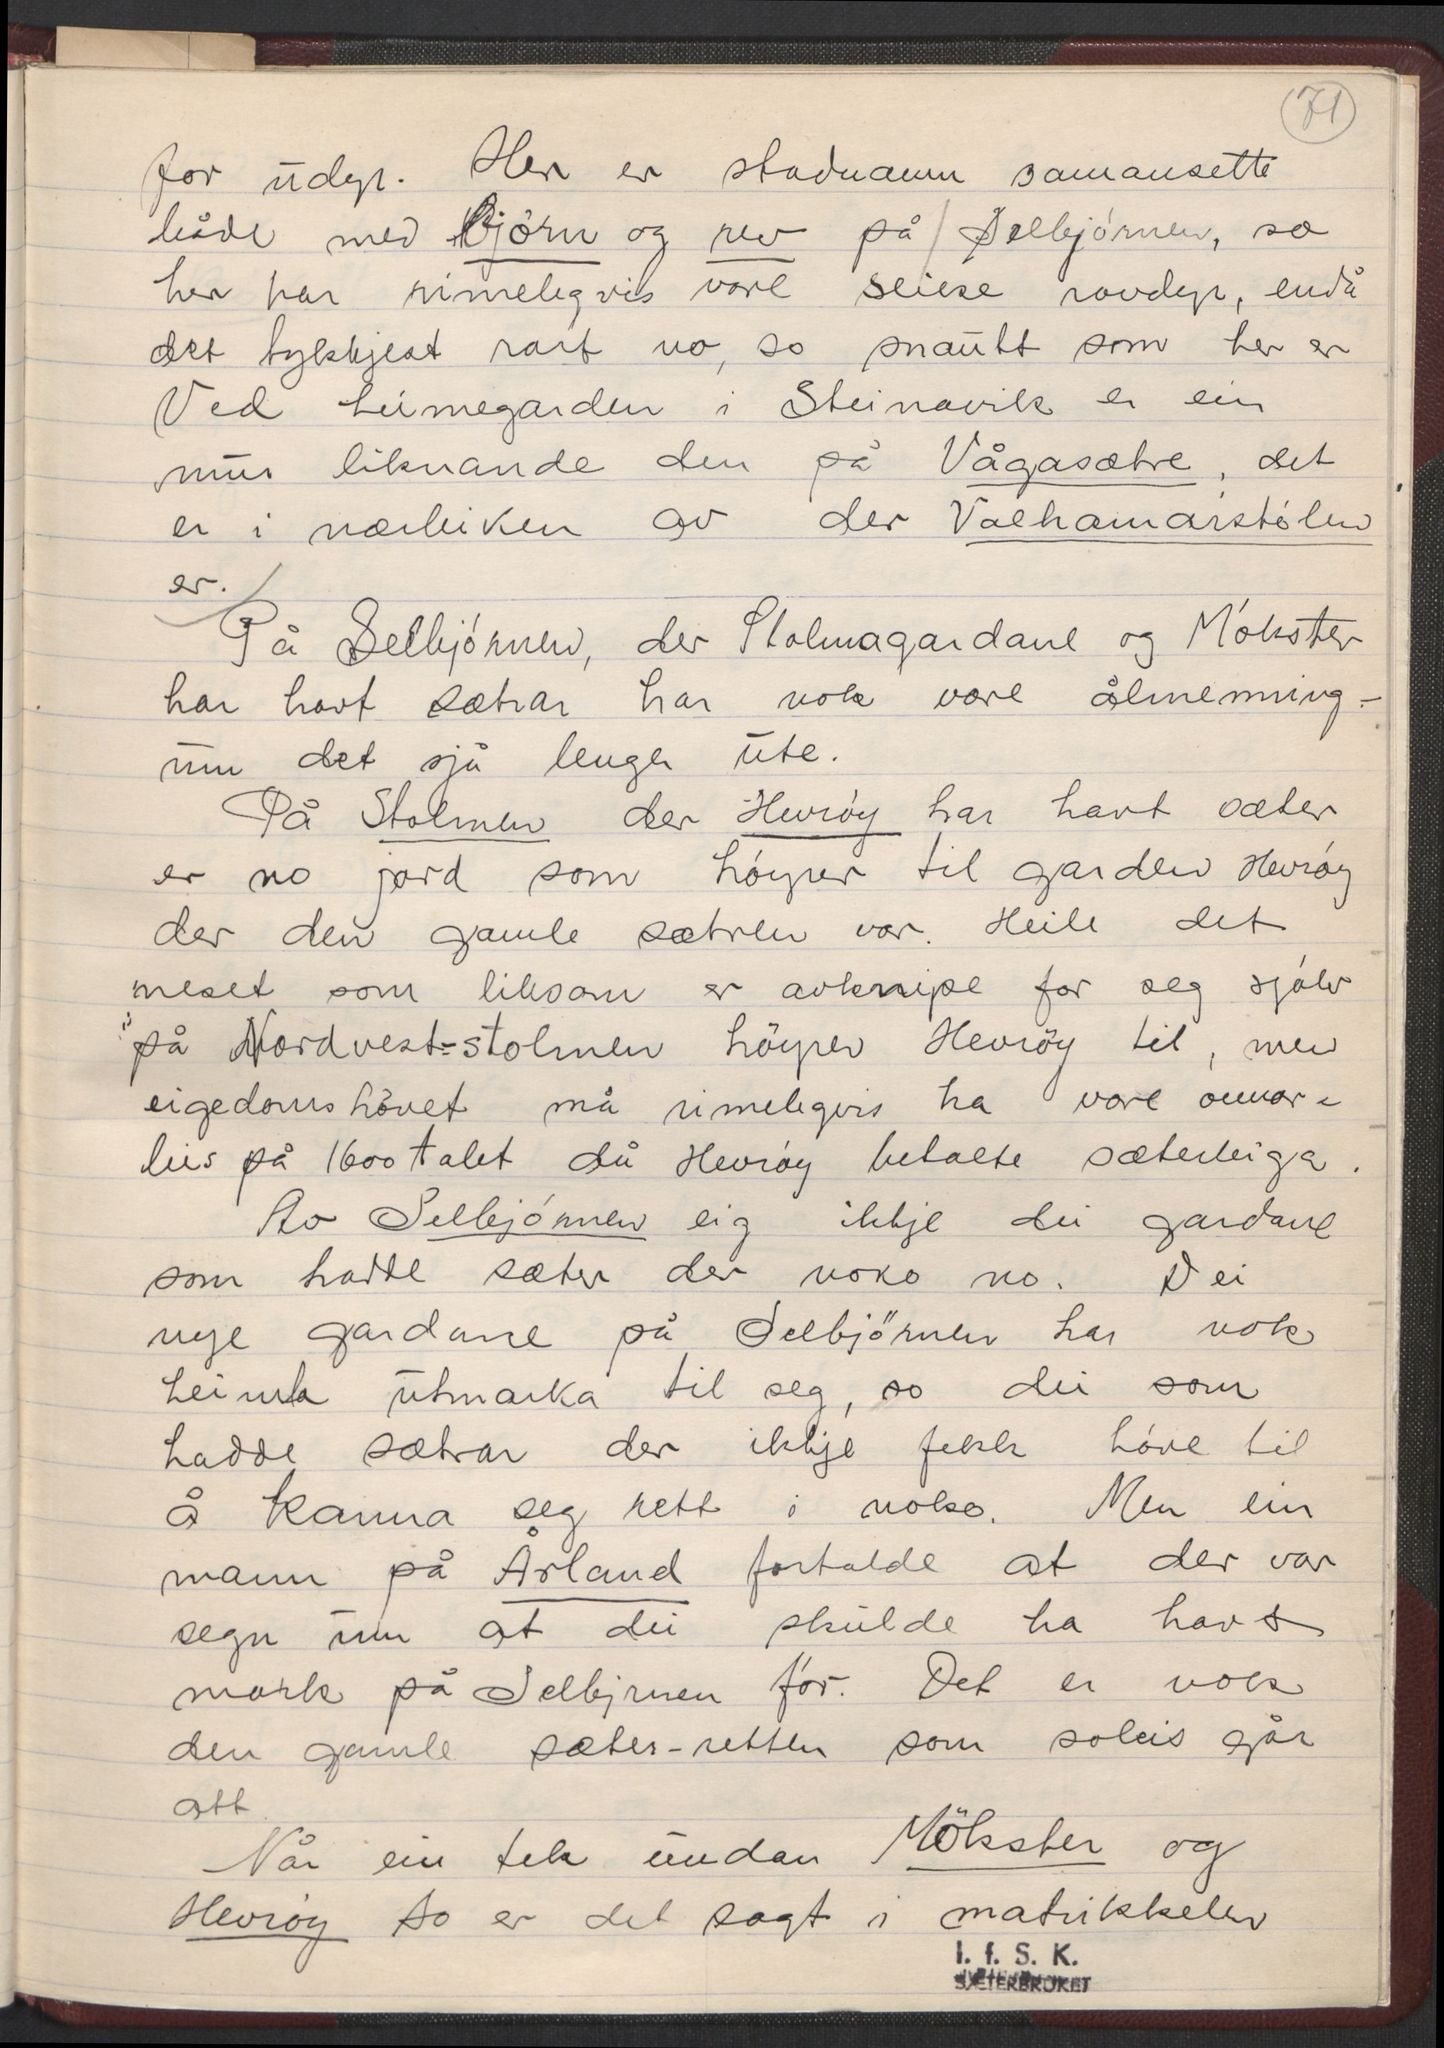 71
for udyr. Her er stadnamn samansette
både med Björn og rev på Selbjørnen, so
her har rimelegvis vore slikse rovdyr, endå
det tykkjest rart no, so snautt som her er
Ved heimegarden i Steinavik er ein
mur liknande den på Vågasætre, det
er i nærleiken av der Valhamarstølen
er.
På Selbjørnen, der Stolmagardane og Møkster
har havt sætrar har nok vore ålmenning-
um det sjå lenger ute.
På Stolmen der Hevrøy har havt sæter
er no jord som høyrer til garden Hevrøy
der den gamle sætren var. Heile det
neset som liksom er avknipe for seg sjølv
på Nordvest-stolmen höyrer Hevröy til, men
eigedomshøvet må rimelegvis ha vore onnor-
leis på 1600 talet då Hevrøy betalte sæterleiga.
Av Selbjørnen eig ikkje dei gardane
som hadde sæter der noko no. Dei
nye gardane på Selbjörnen har nok
heimla utmarka til seg, so dei som
hadde sætrar der ikkje fekk høve til
å kanna seg rett i noko. Men ein
mann på Årland fortalde at der var
segn um at dei skulde ha havt
mark på Selbjrnen för. Det er nok
den gamle sæter-retten som soleis går
att
Når ein tek undan Mökster og
Hevrøy so er det sagt i matrikkelen
I. f. S. K.
SÆTERBRUKET